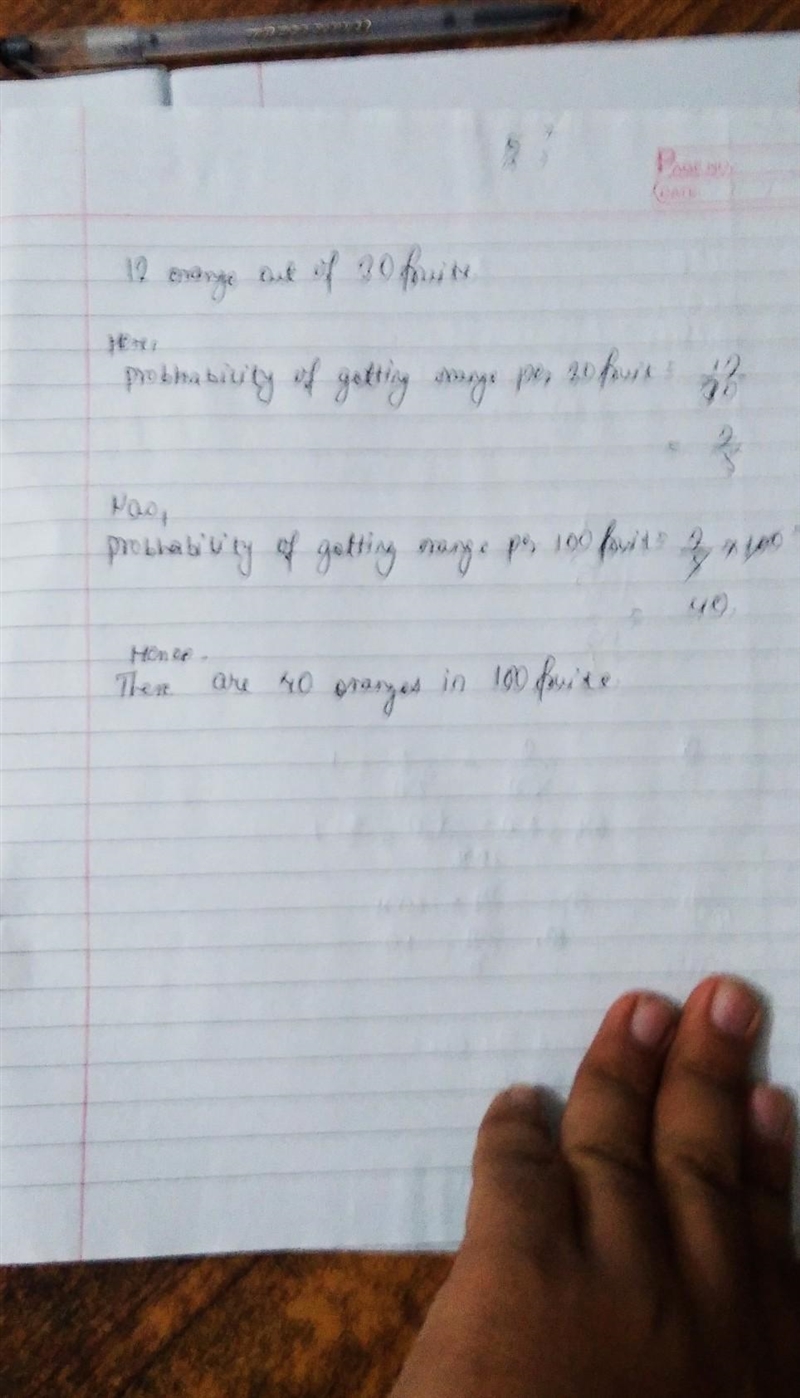 12 orange out of 30 fruits
Here,
probhability of getting orange per 30 fruit = 12/30
= 2/5
Now,
probhability of getting orange per 100 fruit = 2/5 × 100
= 40.
Hence.
There are 40 oranges in 100 fruits.
PAGE NO.
DATE